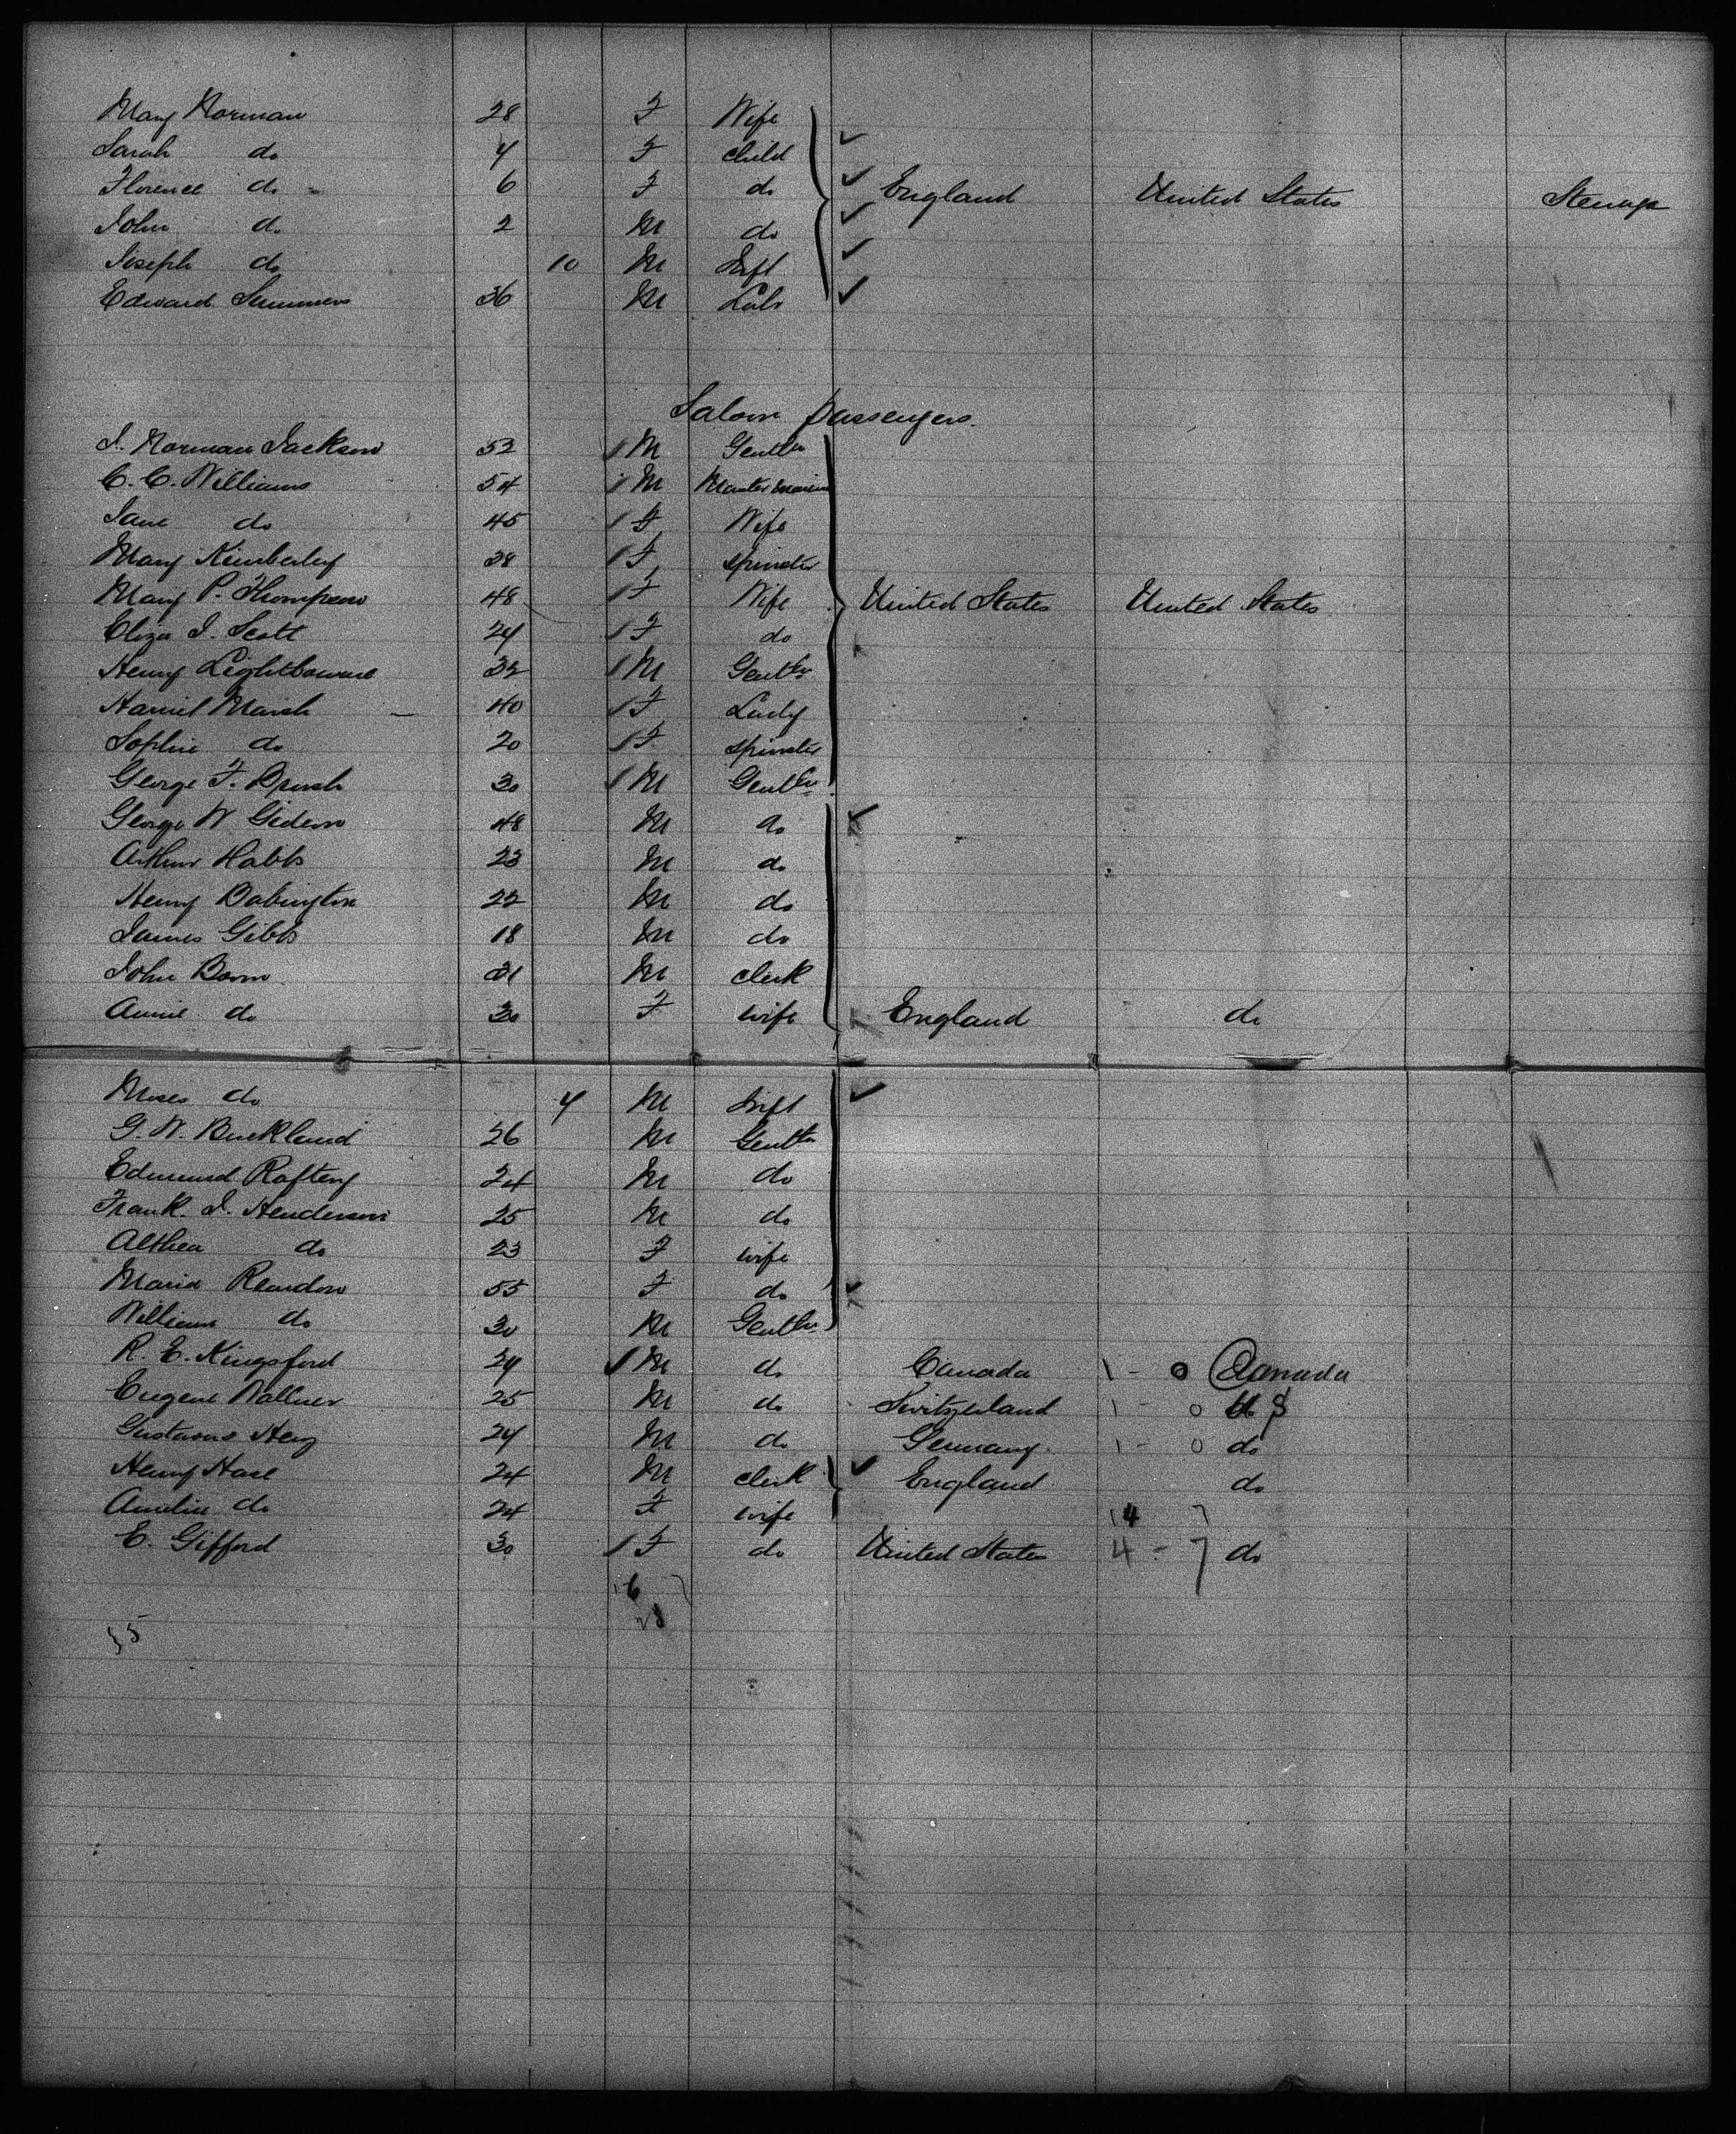 Mary Norman 28 F Wife
Sarah do 4 F child
Florence do 6 F do England United States Steerage
John do 2 M do
Joseph do 10 M Inft
Edward Summers 36 M Lab
Saloon passengers.
J. Norman Jackson 52 M Gentln
C. C. Williams 54 M Master Mariner
Jane do 45 F Wife
Mary Kimberley 28 F Spinster
Mary P. Thompson 48 F Wife United States United States
Eliza J. Scott 24 F do
Henry Lightbourne 32 M Gentln
Harriet Marsh 40 F Lady
Sophie do 20 F Spinster
George F. Brush 30 M Gentln
George W Gideon 48 M do
Arthur Habbs 23 M do
Henry Babington 22 M do
James Gibbs 18 M do
John Born 31 M clerk
Annie do 30 F wife England do
Moses do 4 M Inft
G. W. Buckland 26 M Gentln
Edmund Raftery 24 M do
Frank J. Henderson 25 M do
Althea do 23 F wife
Maria Reardon 55 F do
William do 30 M Gentln
R. E. Kingsford 24 M do Canada 1 - 0 Canada
Eugene Wallner 25 M do Switzerland 1 - 0 U S
Gustavus 24 M do Germany 1 - 0 do
Henry Hase 24 M clerk England do
Amelia do 24 F wife 14 7
E. Gifford 30 F do United States 4 - 7 do
16
28
55